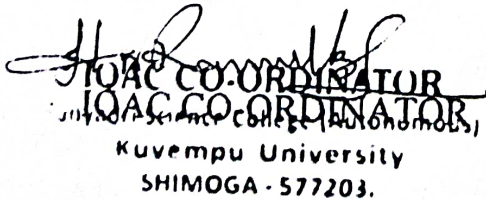 IQAC CO-ORDINATOR
IQAC CO-ORDINATOR
Science College (Autonomous)
Kuvempu University
SHIMOGA - 577203.